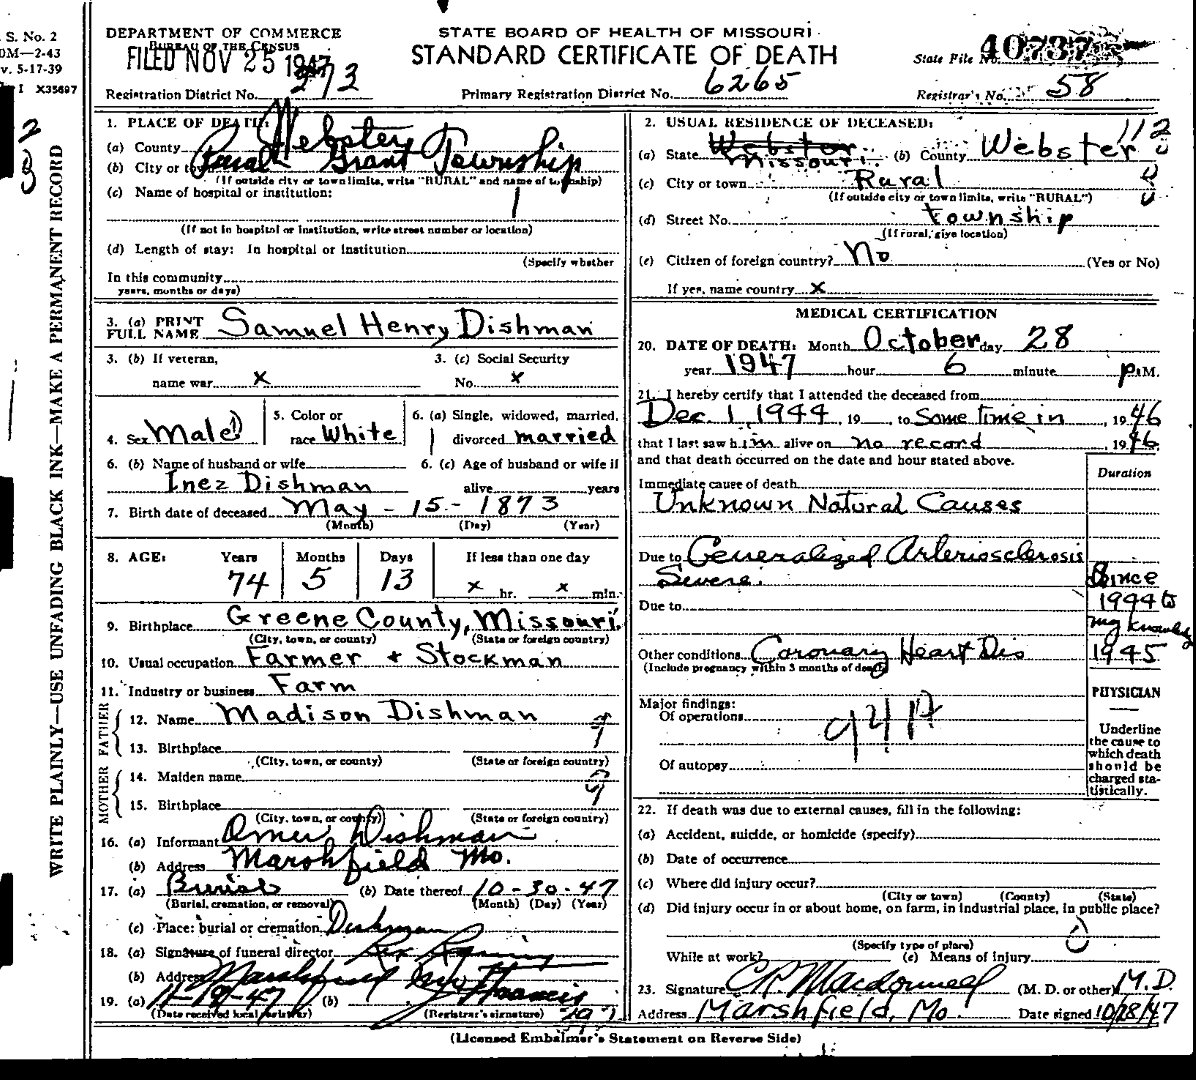 S. No. 2
0M—2-43
v. 5-17-39
I X35697
DEPARTMENT OF COMMERCE
BUREAU OF THE CENSUS
FILED NOV 25 1947
Registration District No. 273
STATE BOARD OF HEALTH OF MISSOURI
STANDARD CERTIFICATE OF DEATH
Primary Registration District No. 6265
State File No. 40737
Registrar's No. 58
WRITE PLAINLY—USE UNFADING BLACK INK—MAKE A PERMANENT RECORD
1. PLACE OF DEATH:
(a) County Webster
(b) City or town Rural Grant Township
(If outside city or town limits, write "RURAL" and name of township)
(c) Name of hospital or institution:
(If not in hospital or institution, write street number or location)
(d) Length of stay: In hospital or institution
(Specify whether
In this community
years, months or days)
3. (a) PRINT FULL NAME Samuel Henry Dishman
3. (b) If veteran, name war x
3. (c) Social Security No. x
4. Sex Male
5. Color or race White
6. (a) Single, widowed, married, divorced married
6. (b) Name of husband or wife Inez Dishman
6. (c) Age of husband or wife if alive years
7. Birth date of deceased May - 15 - 1873
(Month) (Day) (Year)
8. AGE: Years 74 Months 5 Days 13 If less than one day x hr. x min.
9. Birthplace Greene County, Missouri
(City, town, or county) (State or foreign country)
10. Usual occupation Farmer + Stockman
11. Industry or business Farm
FATHER
12. Name Madison Dishman
13. Birthplace
(City, town, or county) (State or foreign country)
MOTHER
14. Maiden name
15. Birthplace
(City, town, or county) (State or foreign country)
16. (a) Informant Omer Dishman
(b) Address Marshfield Mo.
17. (a) Burial (b) Date thereof 10-30-47
(Burial, cremation, or removal) (Month) (Day) (Year)
(c) Place: burial or cremation Dishman
18. (a) Signature of funeral director Rex
(b) Address Marshfield Mo
19. (a) 11-19-47 (b)
(Date received local registrar) (Registrar's signature)
2. USUAL RESIDENCE OF DECEASED: 112
(a) State Missouri (b) County Webster
(c) City or town Rural
(If outside city or town limits, write "RURAL")
(d) Street No. township
(If rural, give location)
(e) Citizen of foreign country? No (Yes or No)
If yes, name country x
MEDICAL CERTIFICATION
20. DATE OF DEATH: Month October day 28
year 1947 hour 6 minute P.M.
21. I hereby certify that I attended the deceased from
Dec. 1, 1944, 19 , to Some time in , 1946
that I last saw him alive on no record 1946
and that death occurred on the date and hour stated above.
Duration
Immediate cause of death
Unknown Natural Causes
Due to Generalized Arteriosclerosis
Severe.
Since
1944 to
my knowledge
Due to
Other conditions Coronary Heart Dis 1945
(Include pregnancy within 3 months of death)
Major findings:
Of operations
94A
Of autopsy
PHYSICIAN
Underline the cause to which death should be charged statistically.
22. If death was due to external causes, fill in the following:
(a) Accident, suicide, or homicide (specify)
(b) Date of occurrence
(c) Where did injury occur?
(City or town) (County) (State)
(d) Did injury occur in or about home, on farm, in industrial place, in public place?
(Specify type of place)
While at work? (e) Means of injury
23. Signature C.R. Macdonnell (M. D. or other) M.D.
Address Marshfield, Mo. Date signed 10/28/47
(Licensed Embalmer's Statement on Reverse Side)